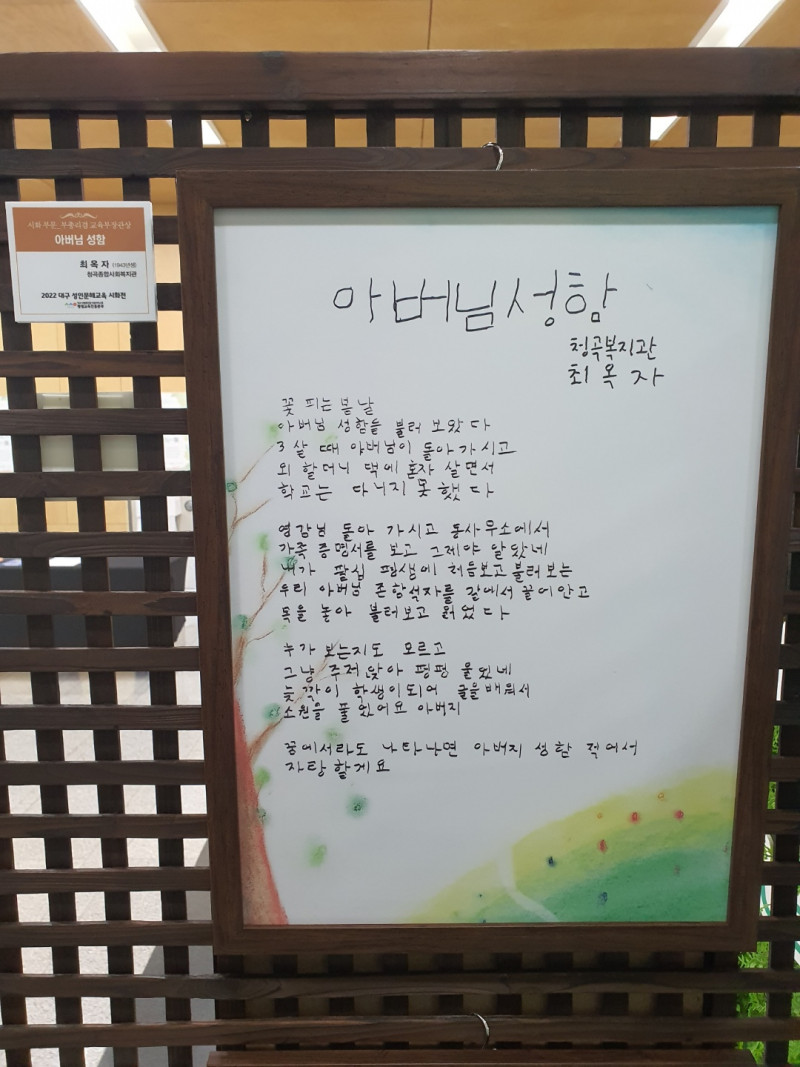 시화 부문_부총리겸 교육부장관상
아버님 성함
최 옥 자 (1942년생)
청곡종합사회복지관
2022 대구 성인문해교육 시화전
아버님성함
청곡복지관
최 옥 자
꽃 피는 봄 날
아버님 성함을 불러 보았다
3 살 때 아버님이 돌아 가시고
외 할머니 댁에 혼자 살면서
학교는 다니지 못 했 다
영감님 돌아 가시고 동사무소에서
가족 증명서를 보고 그제야 알 았네
내가 팔십 평생에 처음보고 불러보는
우리 아버님 존함석자를 길에서 끌어안고
목을 놓아 불러보고 웃었 다
누가 보는지도 모르고
그냥 주저 앉아 펑펑 울었네
늦 깍이 학생이되어 글을배워서
소원을 풀 었어요 아버지
꿈에서라도 나타나면 아버지 성함 적어서
자랑 할게요